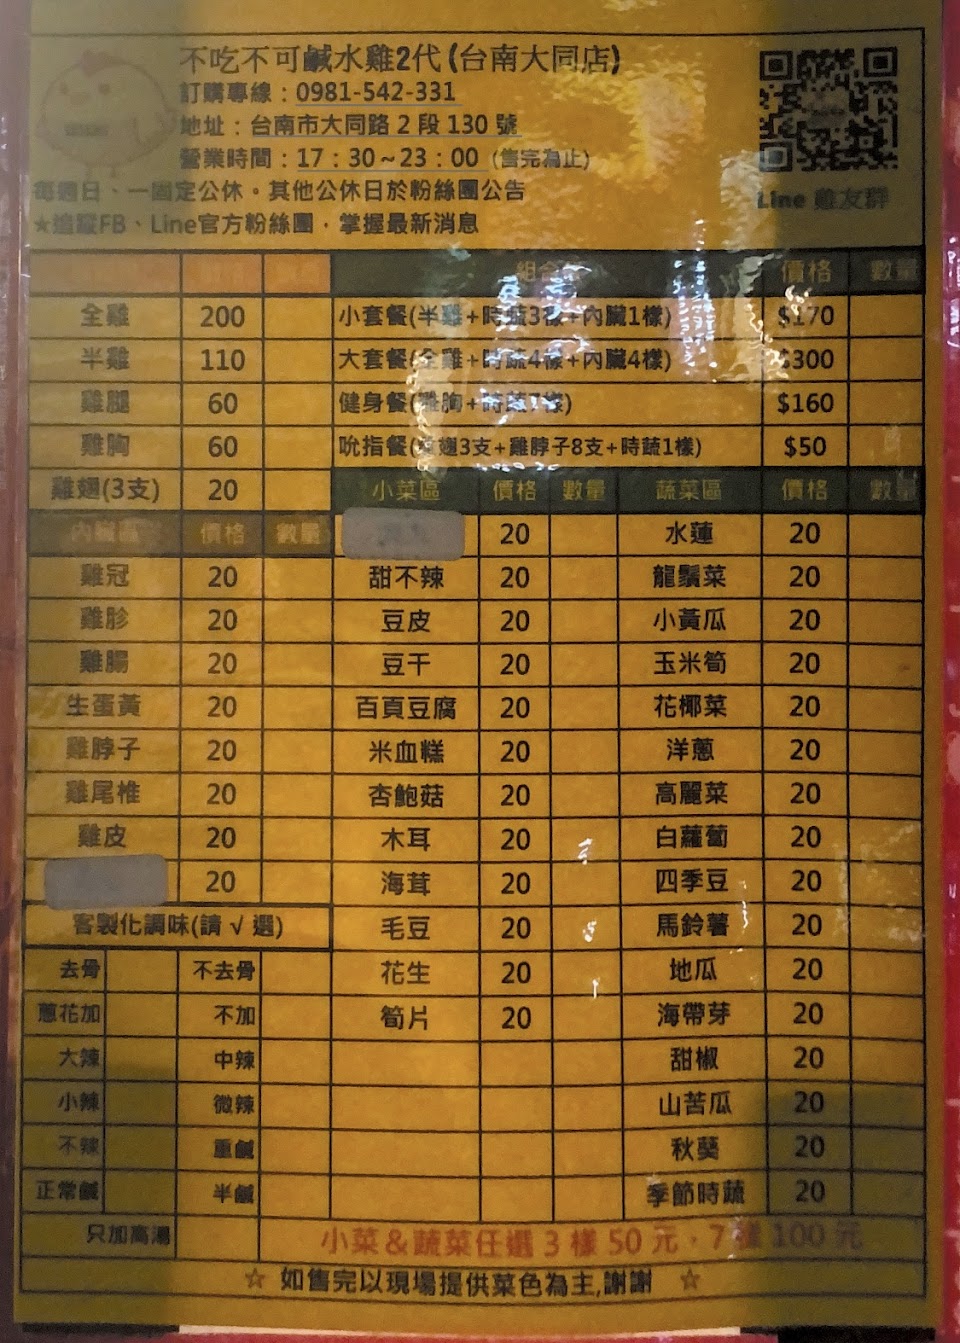 不吃不可鹹水雞2代(台南大同店)
訂購專線：0981-542-331
地址：台南市大同路2段130號
營業時間：17：30～23：00 (售完為止)
每週日、一固定公休。其他公休日於粉絲團公告
★追蹤FB、Line官方粉絲團，掌握最新消息
Line 雞友群
組合 價格 數量
全雞 200 小套餐(半雞+時蔬3樣+內臟1樣) $170
半雞 110 大套餐(全雞+時蔬4樣+內臟4樣) $300
雞腿 60 健身餐(雞胸+時蔬 樣) $160
雞胸 60 吮指餐( 翅3支+雞脖子8支+時蔬1樣) $50
雞翅(3支) 20 小菜區 價格 數量 蔬菜區 價格 數量
內臟區 價格 數量 20 水蓮 20
雞冠 20 甜不辣 20 龍鬚菜 20
雞胗 20 豆皮 20 小黃瓜 20
雞腸 20 豆干 20 玉米筍 20
生蛋黃 20 百頁豆腐 20 花椰菜 20
雞脖子 20 米血糕 20 洋蔥 20
雞尾椎 20 杏鮑菇 20 高麗菜 20
雞皮 20 木耳 20 白蘿蔔 20
20 海茸 20 四季豆 20
客製化調味(請 √ 選) 毛豆 20 馬鈴薯 20
去骨 不去骨 花生 20 地瓜 20
蔥花加 不加 筍片 20 海帶芽 20
大辣 中辣 甜椒 20
小辣 微辣 山苦瓜 20
不辣 重鹹 秋葵 20
正常鹹 半鹹 季節時蔬 20
只加高湯 小菜＆蔬菜任選3樣50元，7樣100元
☆ 如售完以現場提供菜色為主,謝謝 ☆